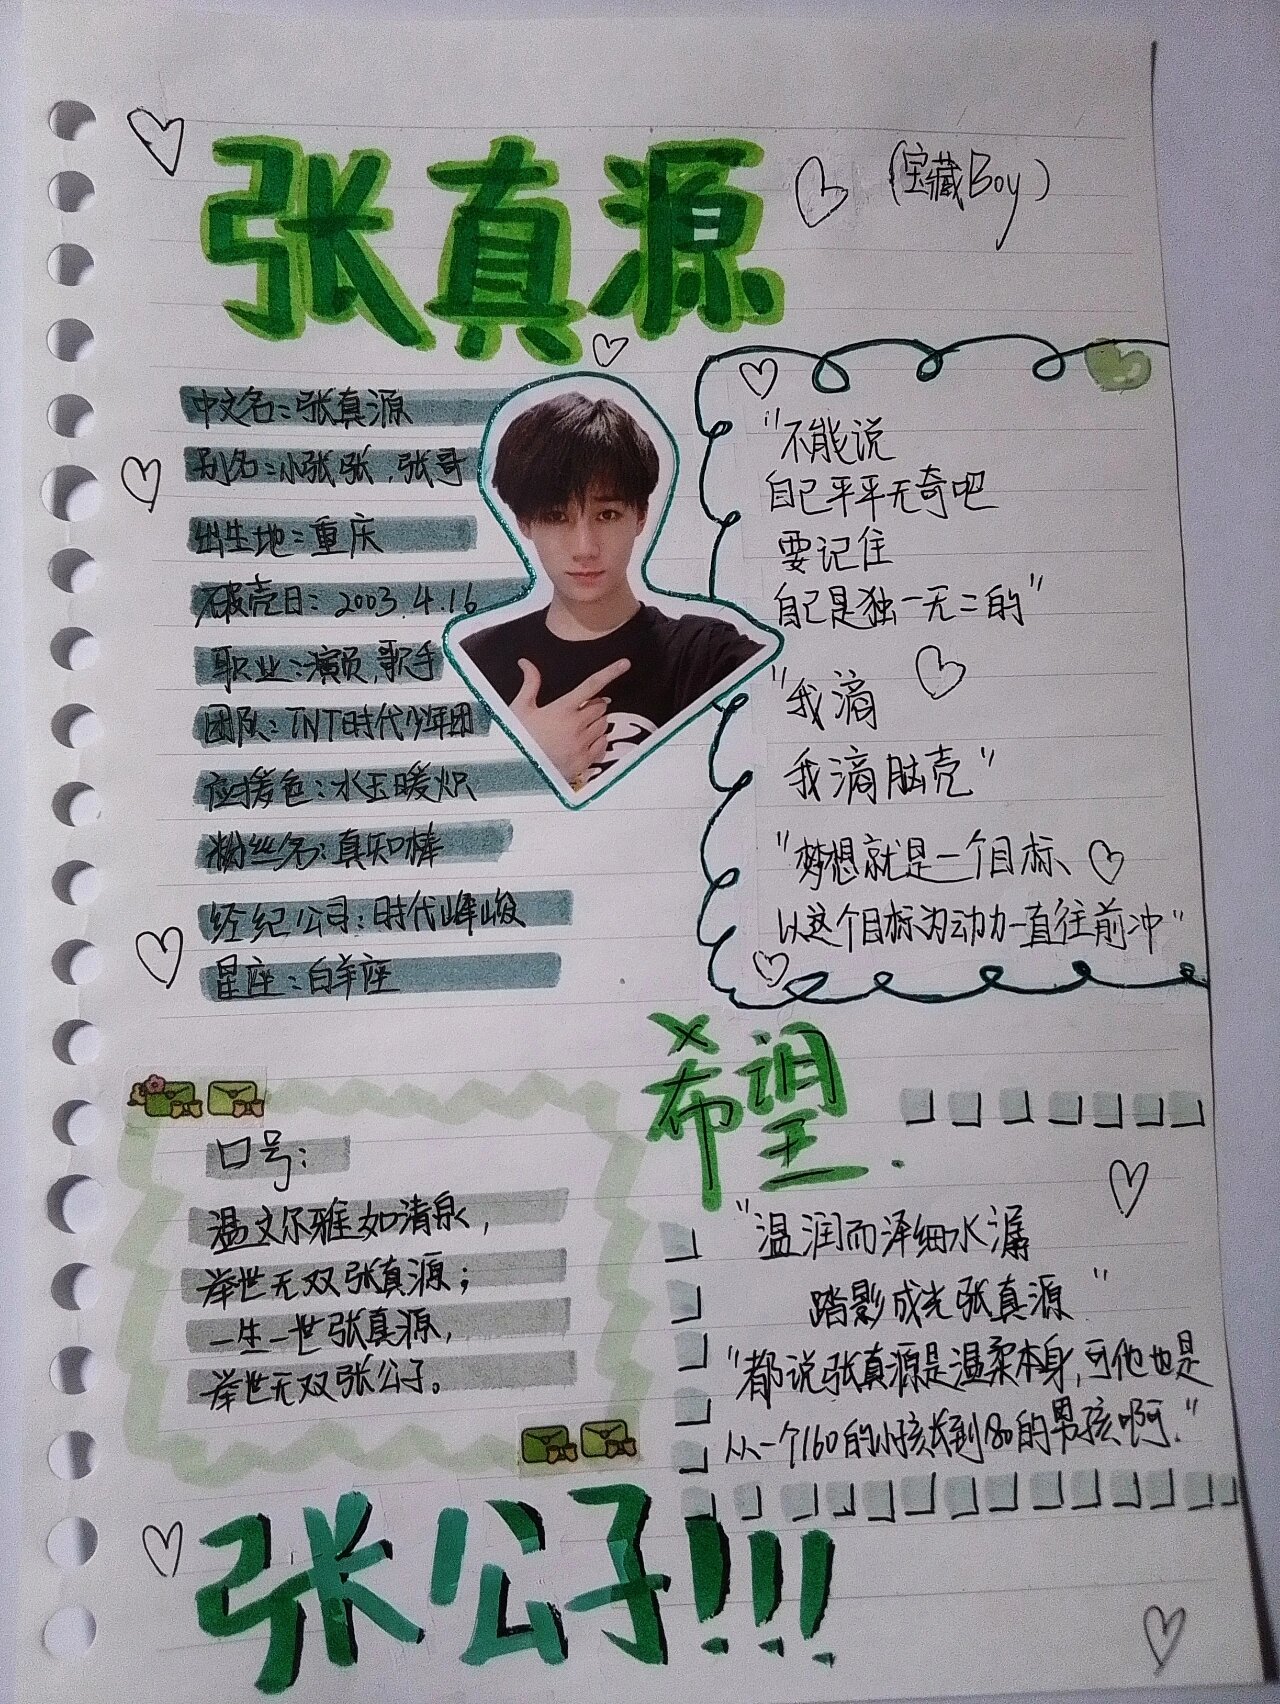 张真源
(宝藏Boy)
中文名:张真源
别名:小张张,张哥
出生地:重庆
破壳日:2003.4.16
职业:演员,歌手
团队:TNT时代少年团
应援色:水玉暖炽
粉丝名:真知棒
经纪公司:时代峰峻
星座:白羊座
"不能说
自己平平无奇吧
要记住
自己是独一无二的"
"我滴
我滴脑壳"
"梦想就是一个目标、
以这个目标为动力一直往前冲"
口号:
温文尔雅如清泉,
举世无双张真源;
一生一世张真源,
举世无双张公子。
希望.
"温润而泽细水潺
踏影成光张真源"
"都说张真源是温柔本身,可他也是
从一个160的小孩长到180的男孩啊."
张公子!!!